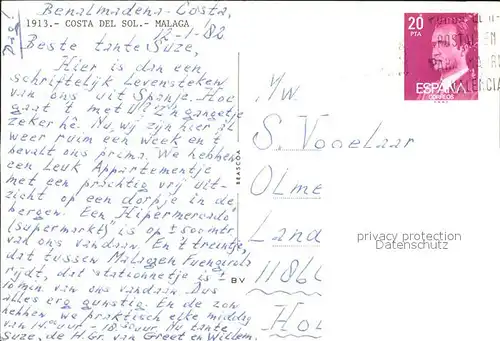 Benalmadena-Costa,
1913.- COSTA DEL SOL.- MALAGA
12-1-'82
Dag!
Beste tante Suze,
Hier is dan een
schriftelijk Levensteken
van ons uit Spanje. Hoe
gaat 't met U? Z'n gangetje
zeker hè. Nu, wij zijn hier al
weer ruim een week en 't
bevalt ons prima. We hebben
een Leuk Appartementje
met een prachtig vrij uit-
zicht op een dorpje in de
bergen. Een "Hipermercado"
(supermarkt) is op ± 500 mtr.
van ons vandaan. En 't treintje,
dat tussen Malaga en Fuengirola
rijdt, dat "stationnetje" is ±
10 min. van ons vandaan. Dus
alles erg gunstig. En de zon
hebben we praktisch elke middag
van 14.00 uur - 18.30 uur. Nu tante
Suze, de H. Gr. van Greet en Willem.
BRASCOA
BV
20
PTA
ESPAÑA
CORREOS
POSTAL EN
VALENCIA
M/w.
S. Vogelaar
Olme
Land
1186
Hol
privacy protection
Datenschutz